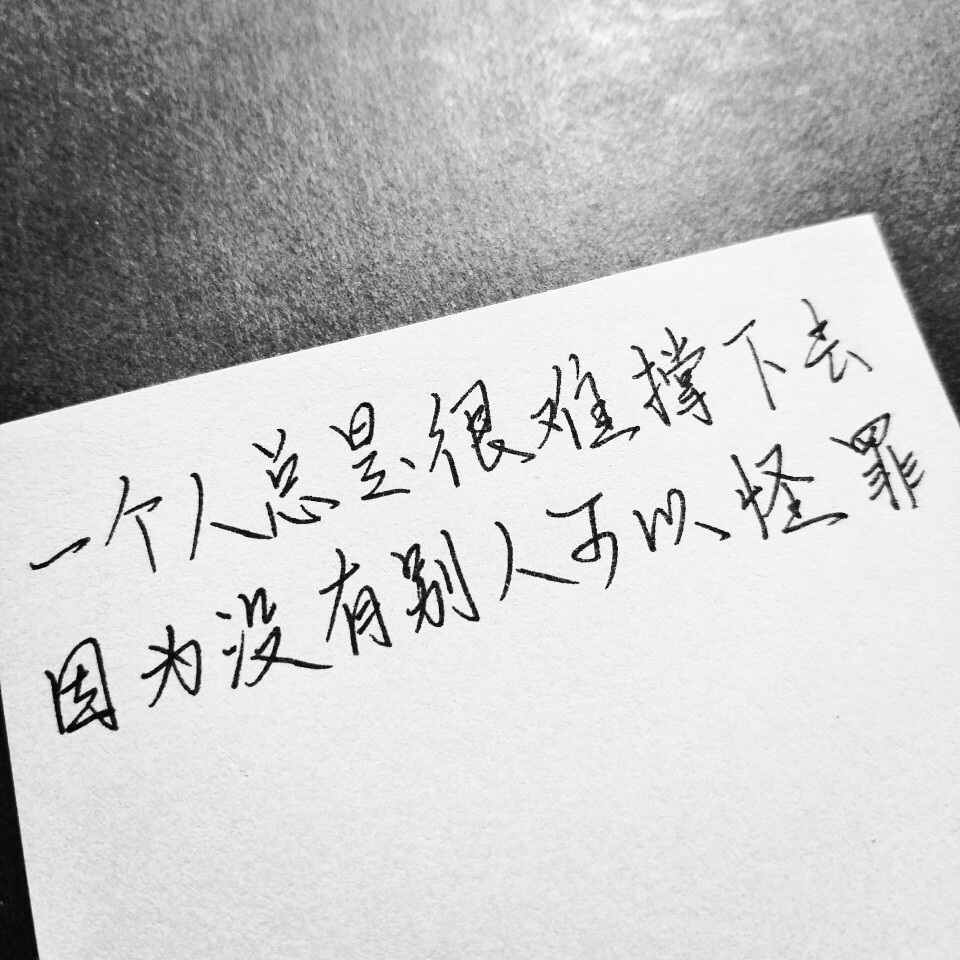 一个人总是很难撑下去
因为没有别人可以怪罪